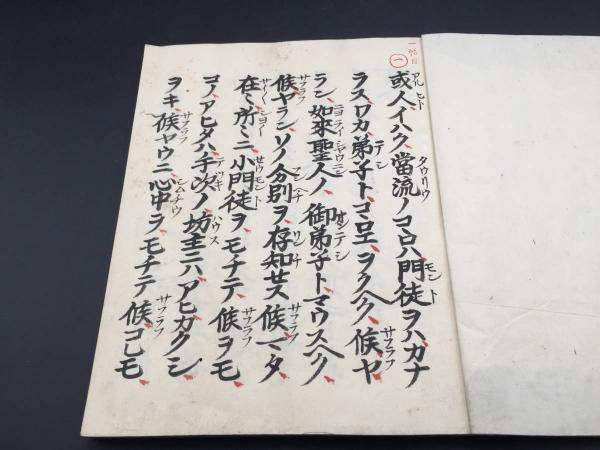 一帖目
一
或人イハク、當流ノコヽロハ、門徒ヲハ、カナ
ラス、ワカ弟子ト、コヽロエヲクヘク、候ヤ
ラン、如來聖人ノ、御弟子ト、マウスヘク
候ヤラン、ソノ分別ヲ、存知セス、候、マタ、
在々所々ニ、小門徒ヲ、モチテ、候ヲモ、
コノアヒタハ、手次ノ坊主ニハ、アヒカクシ、
ヲキ、候ヤウニ、心中ヲ、モチテ、候、コレモ、